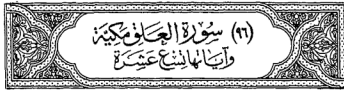 (٩٦) سُورَةُ العَلَق مَكِيَّة
وَآيَاتُهَا تِسْعَ عَشَرَة